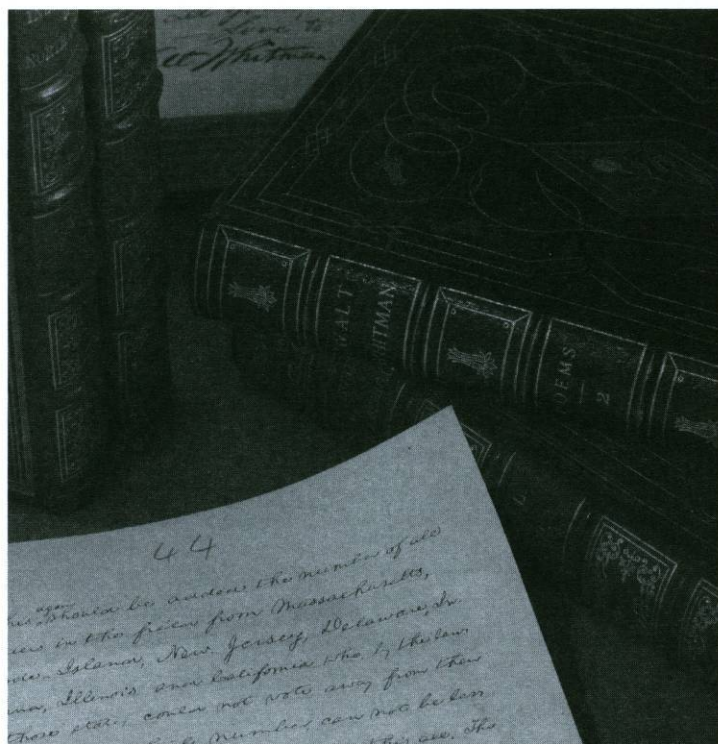 Love to
Whitman
WALT
WHITMAN
POEMS
2
44
again
should be added the number of all
in the field from Massachusetts,
Island, New Jersey, Delaware, In
Illinois and California who, by the laws
those states, could not vote away from their
number can not be less
The